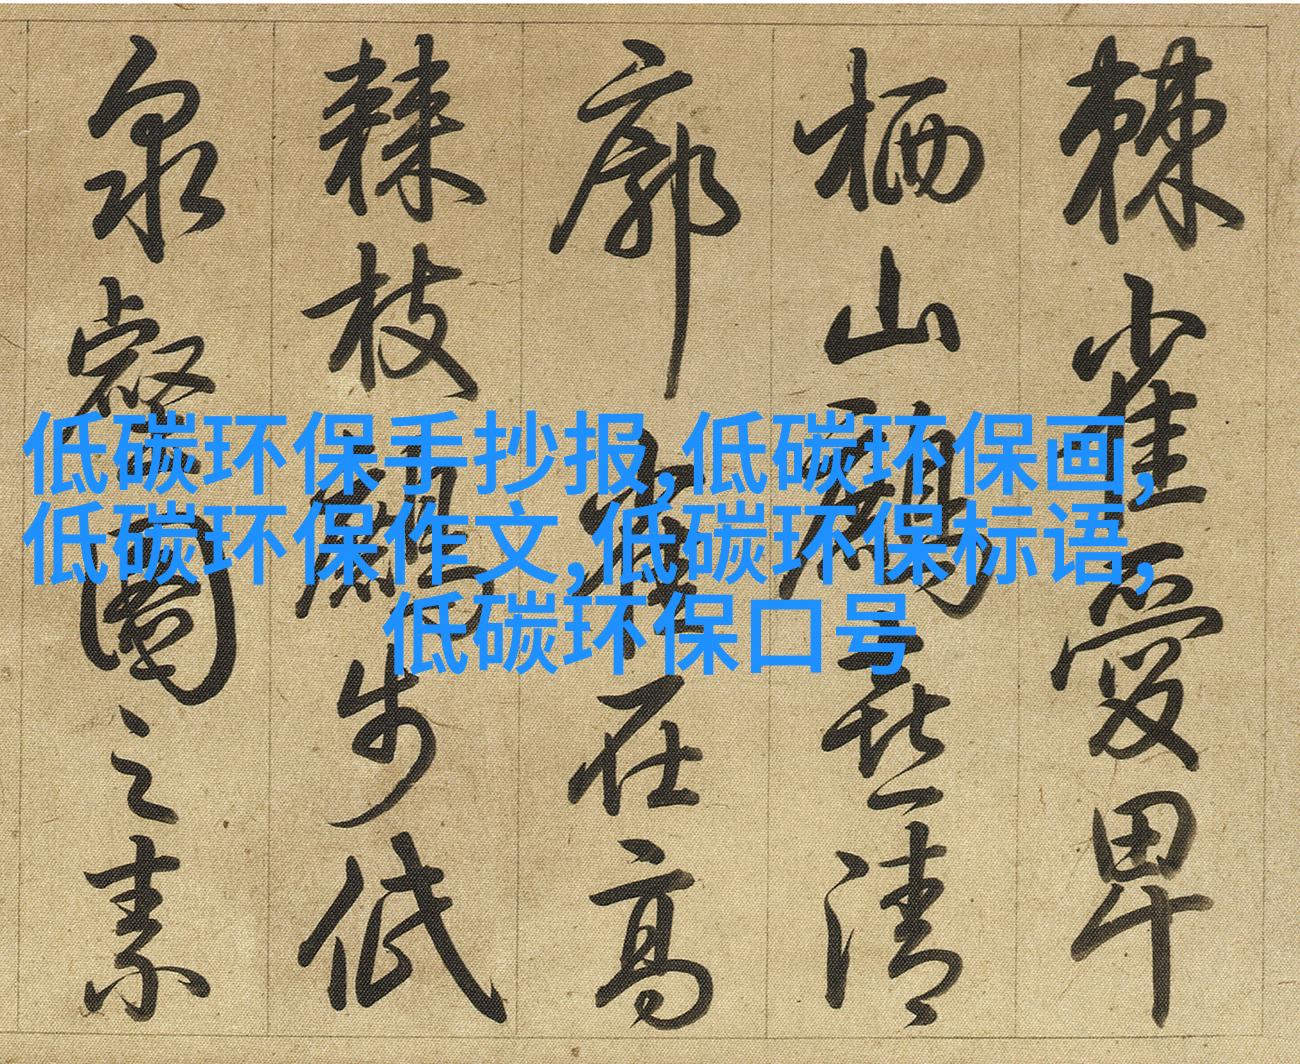 低碳环保手抄报,低碳环保画,
低碳环保作文,低碳环保标语,
低碳环保口号
棘雀愛卑
栖山清
廓在高
棘枝步低
泉壑之素